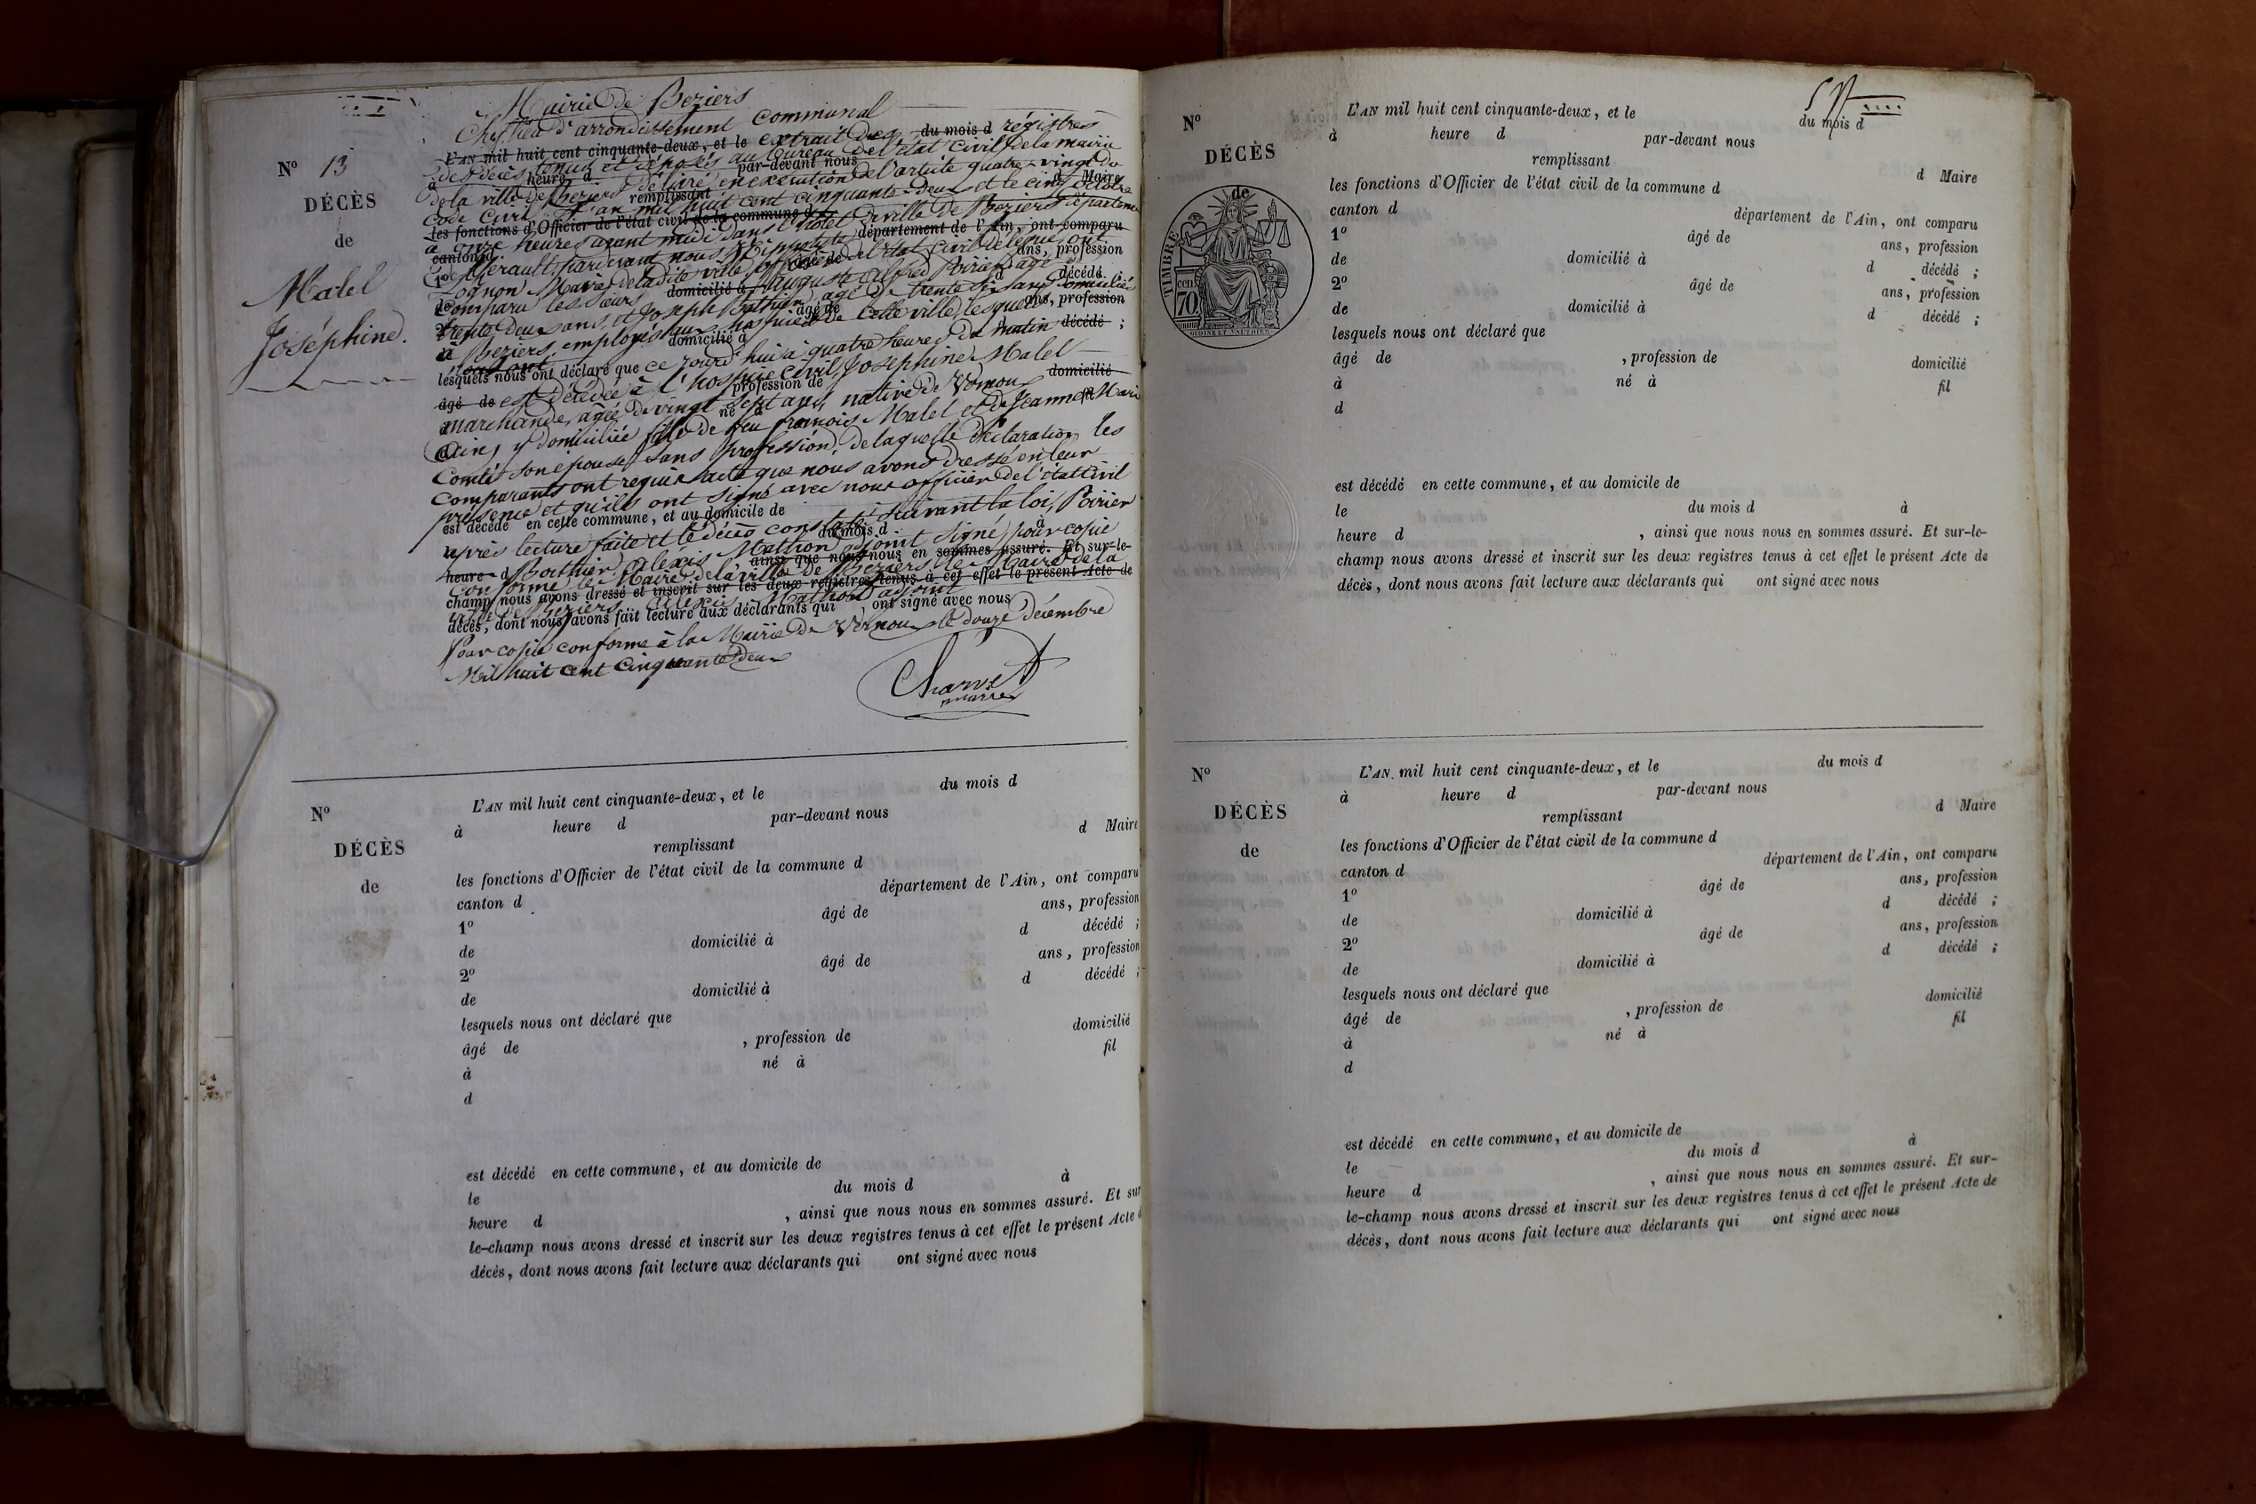 Mairie de Beziers
Chef lieu d'arrondissement communal
L'AN mil huit cent cinquante-deux, et le extrait des du mois d régistres
de décès tenus et déposés au bureau de l'état civil de la mairie
à heure d par-devant nous
de la ville de Beziers délivré en exécution de l'article quatre-vingt du
d Maire
remplissant
code civil. L'an mil huit cent cinquante-deux et le cinq octobre
les fonctions d'Officier de l'état civil de la commune d
à onze heures avant midi dans l'hôtel de ville de Beziers département
canton d département de l'Ain, ont comparu
hérault, pardevant nous
1º âgé de ans, profession
Lognon Maire de la dite ville officier de l'état civil
de domicilié à d décédé
comparu les sieurs Auguste Alfred Poirier, agé de
2º âgé de ans, profession
trente deux ans, et Joseph Bathier, agé de trente six ans domiciliés
de domicilié à d décédé ;
à Beziers employés aux hospices de cette ville, lesquels
nous ont
lesquels nous ont déclaré que ce jourd'hui à quatre heures du matin
âgé de est décédée à l'hospice civil, Josephine Malel
profession de domicilié
marchande, agée de vingt sept ans, native de Vernoux
à né à fil
(Ain) y domiciliée fille de feu françois Malel et de Jeanne Marie
d
Comtet son épouse, sans profession, de laquelle déclaration les
comparants ont requis acte que nous avons dressé en leur
présence et qu'ils ont signé avec nous officier de l'état civil
est décédé en cette commune, et au domicile de
après lecture faite et le décès constaté suivant la loi, Poirier
du mois d à
Bathier, Alexis Mathon adjoint signé, pour copie
heure d ainsi que nous nous en sommes assuré. Et sur-le-
conforme, le Maire de la ville de Beziers le Maire de la
champ nous avons dressé et inscrit sur les deux registres tenus à cet effet le présent Acte de
ville de Beziers Alexis Mathon adjoint
décès, dont nous avons fait lecture aux déclarants qui , ont signé avec nous
Pour copie conforme à la Mairie de Vernoux le douze décembre
Mil huit cent cinquante deux
Charvet
maire
Nº 13
DÉCÈS
de
Malel
Joséphine.
Nº
DÉCÈS
de
L'AN mil huit cent cinquante-deux, et le du mois d
à heure d par-devant nous
d Maire
remplissant
les fonctions d'Officier de l'état civil de la commune d
canton d département de l'Ain, ont comparu
1º âgé de ans, profession
de domicilié à d décédé ;
2º âgé de ans, profession
de domicilié à d décédé ;
lesquels nous ont déclaré que
âgé de , profession de domicilié
à né à fil
d
est décédé en cette commune, et au domicile de
le du mois d à
heure d , ainsi que nous nous en sommes assuré. Et sur
le-champ nous avons dressé et inscrit sur les deux registres tenus à cet effet le présent Acte d
décès, dont nous avons fait lecture aux déclarants qui ont signé avec nous
Nº
DÉCÈS
de
TIMBRE
70 cen
L'AN mil huit cent cinquante-deux, et le du mois d
à heure d par-devant nous
d Maire
remplissant
les fonctions d'Officier de l'état civil de la commune d
canton d département de l'Ain, ont comparu
1º âgé de ans, profession
de domicilié à d décédé ;
2º âgé de ans, profession
de domicilié à d décédé ;
lesquels nous ont déclaré que
âgé de , profession de domicilié
à né à fil
d
est décédé en cette commune, et au domicile de
le du mois d à
heure d , ainsi que nous nous en sommes assuré. Et sur-le-
champ nous avons dressé et inscrit sur les deux registres tenus à cet effet le présent Acte de
décès, dont nous avons fait lecture aux déclarants qui ont signé avec nous
Nº
DÉCÈS
de
L'AN mil huit cent cinquante-deux, et le du mois d
à heure d par-devant nous
d Maire
remplissant
les fonctions d'Officier de l'état civil de la commune d
canton d département de l'Ain, ont comparu
1º âgé de ans, profession
de domicilié à d décédé ;
2º âgé de ans, profession
de domicilié à d décédé ;
lesquels nous ont déclaré que
âgé de , profession de domicilié
à né à fil
d
est décédé en cette commune, et au domicile de
le du mois d à
heure d , ainsi que nous nous en sommes assuré. Et sur-
le-champ nous avons dressé et inscrit sur les deux registres tenus à cet effet le présent Acte de
décès, dont nous avons fait lecture aux déclarants qui ont signé avec nous